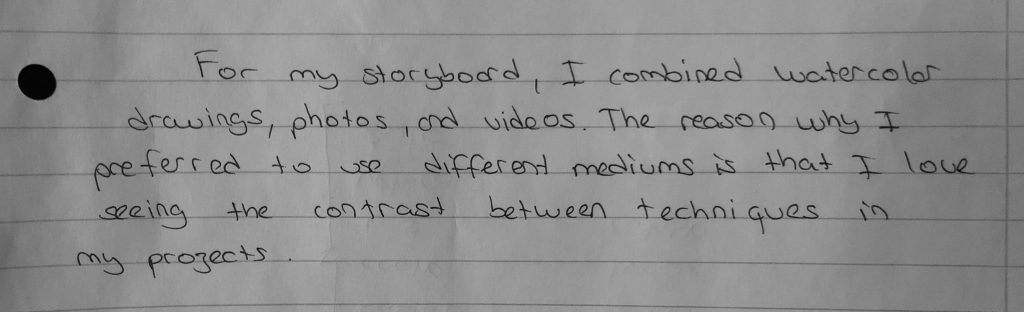 For my storyboard, I combined watercolor
drawings, photos, and videos. The reason why I
preferred to use different mediums is that I love
seeing the contrast between techniques in
my projects.